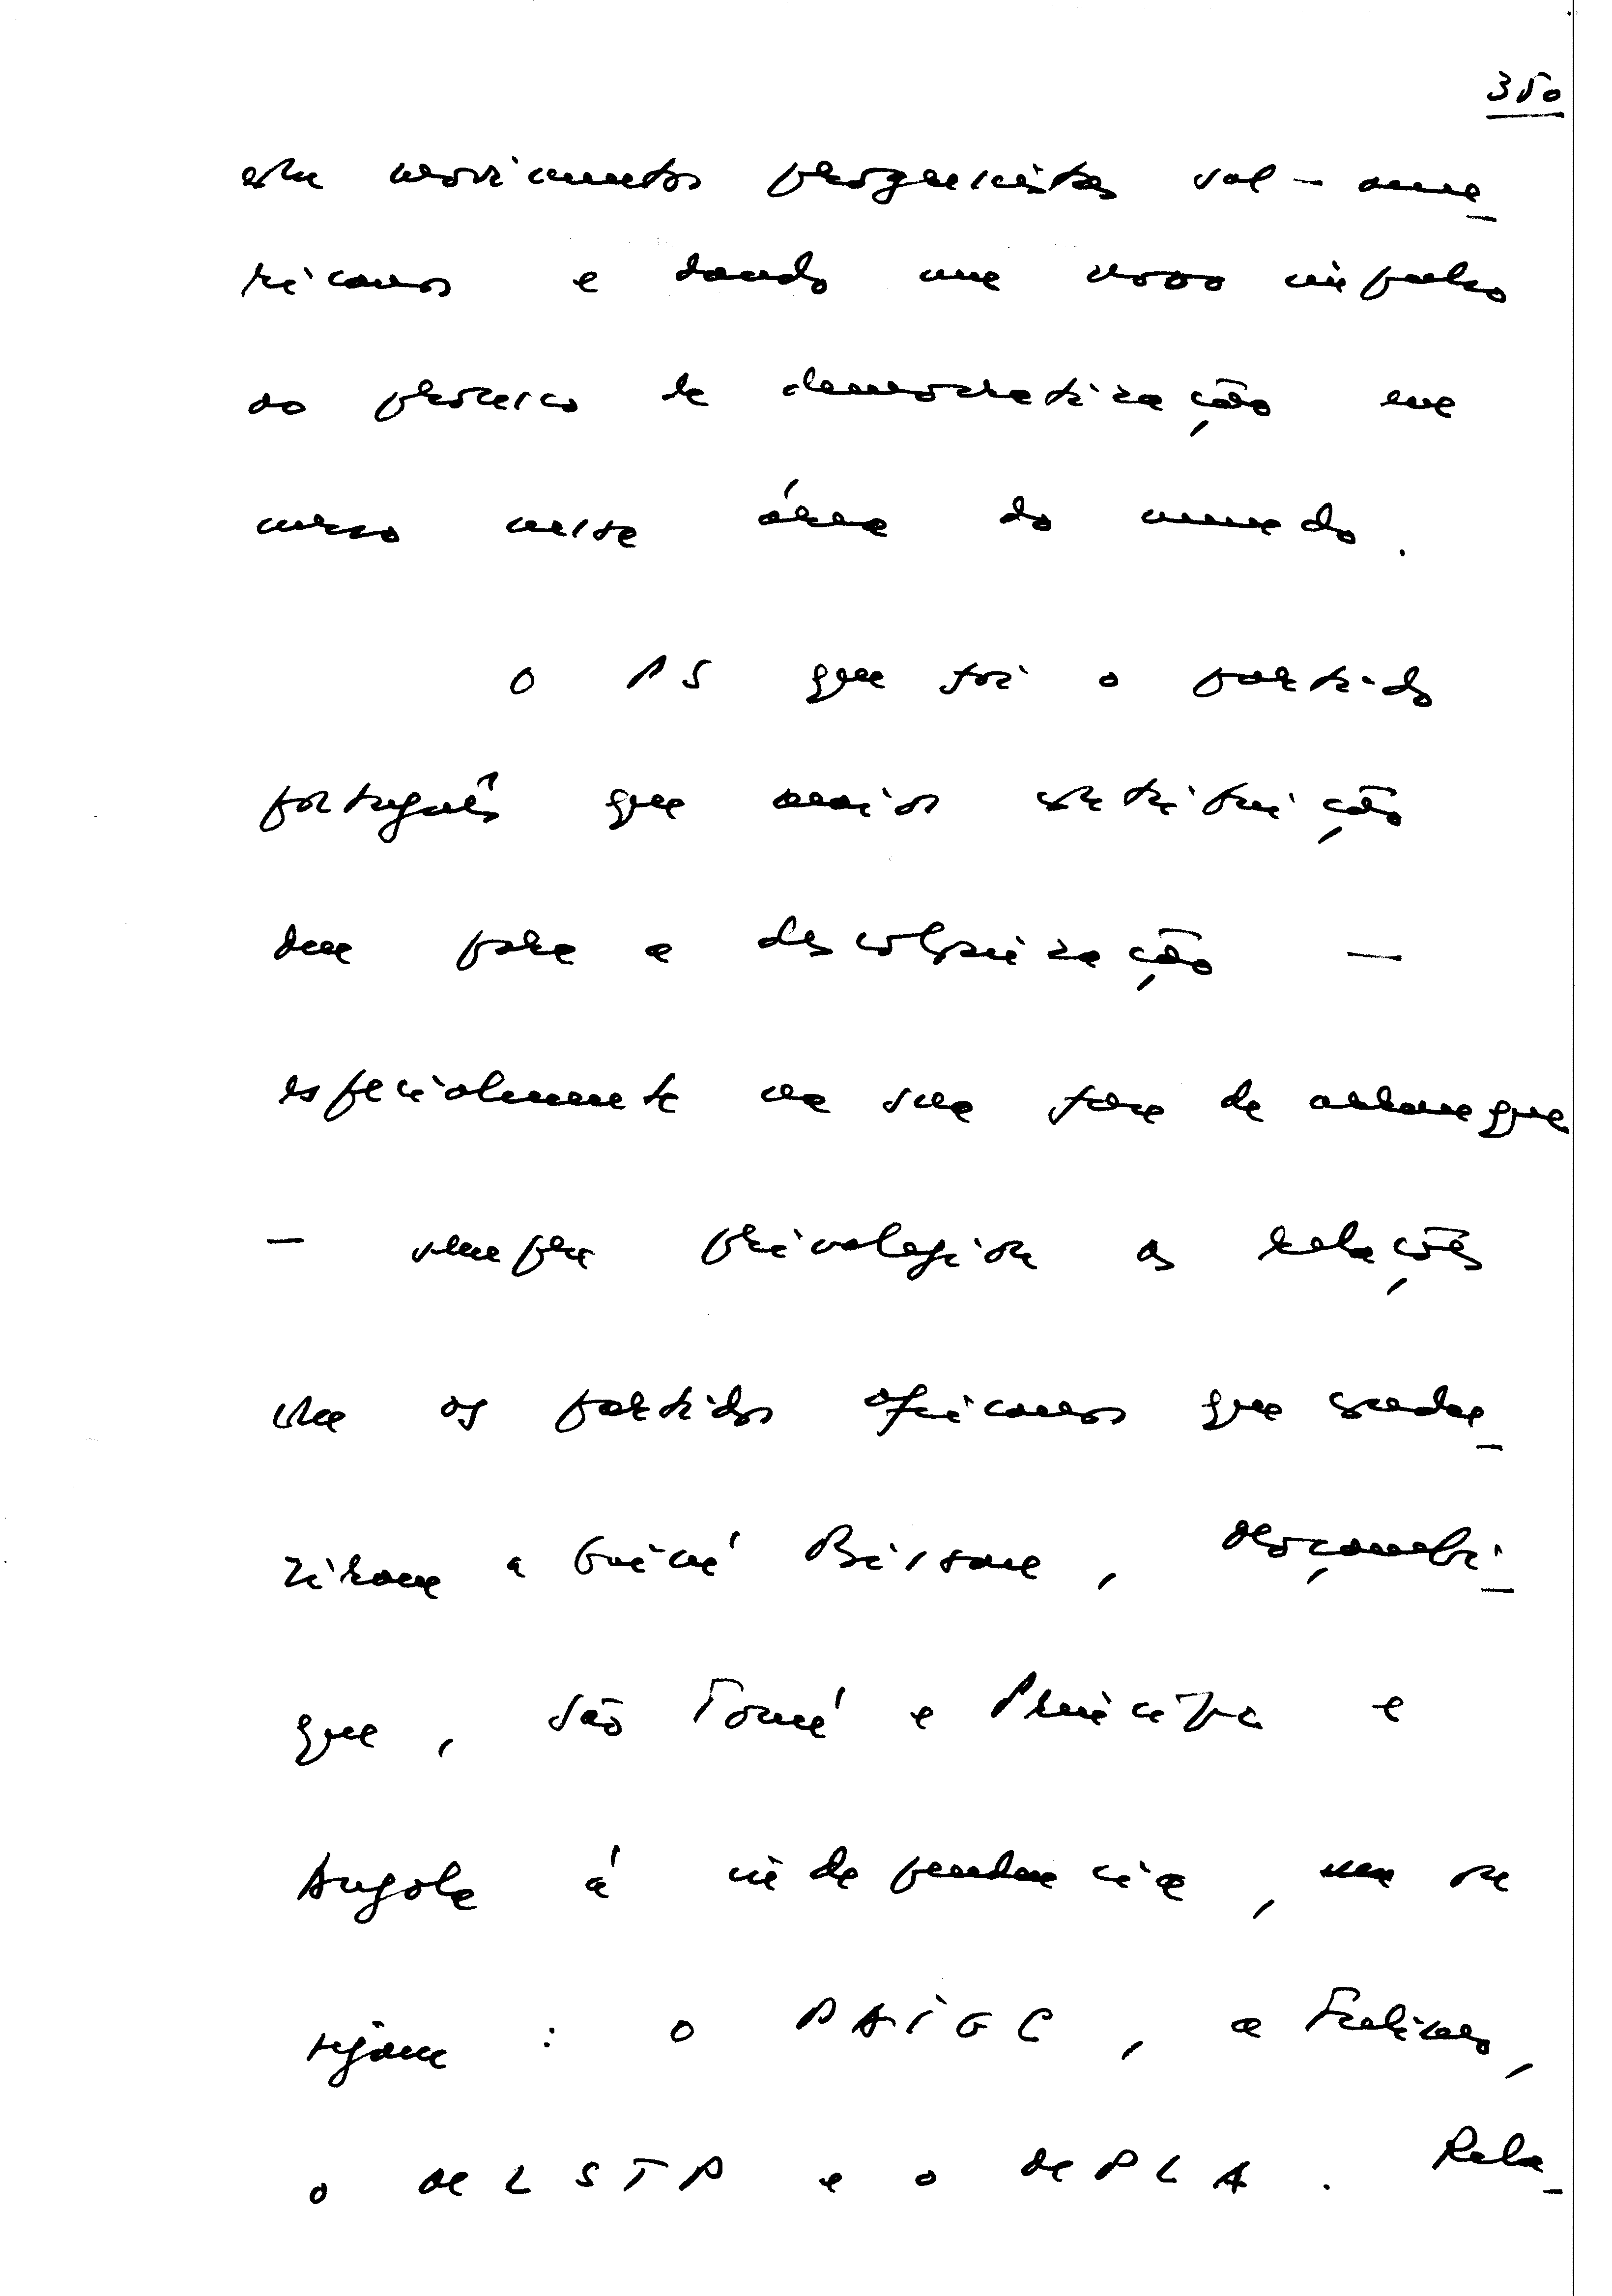 350
com movimentos progressistas sul-ame-
ricanos e dando um novo impulso
ao processo de democratização em
curso nessa área do mundo.
O PS que foi o partido
português que maior contribuição
deu para a descolonização —
especialmente na sua fase de arranque
— sempre privelegiou as relações
com os partidos africanos que condu-
ziram a Guiné Bissau, Moçambi-
que, São Tomé e Príncipe e
Angola à independencia, ou
sejam : o PAIGC, a Frelimo,
o MLSTP e o MPLA. Rela-